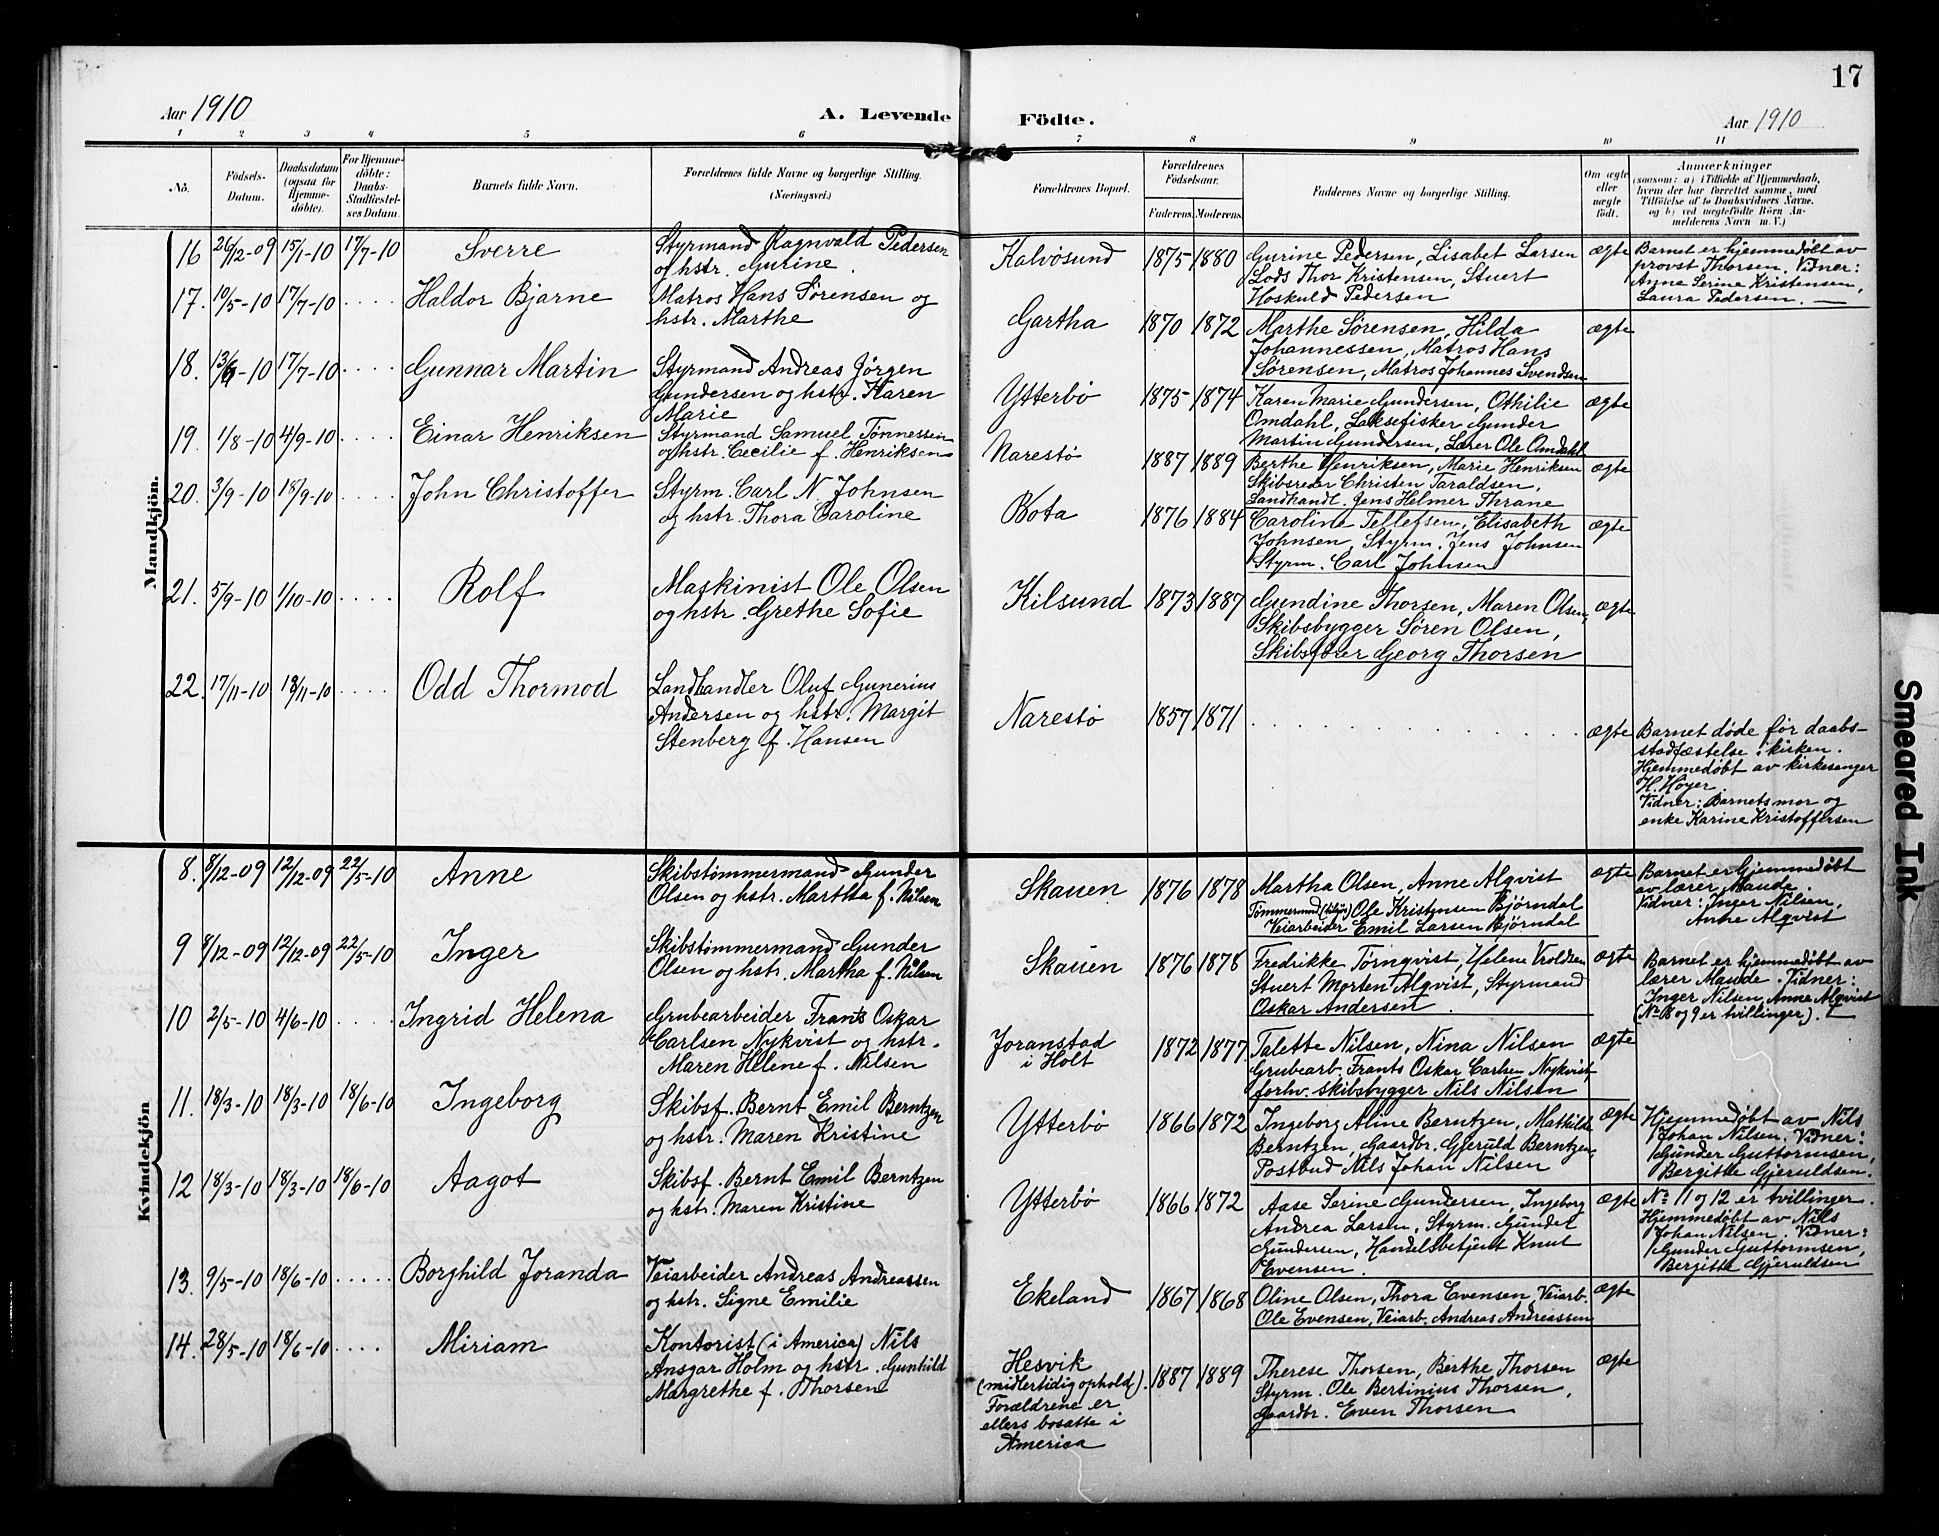 17
Aar 1910
A. Levende Fødte.
Aar 1910
1 2 3 4 5 6 7 8 9 10 11
No.
Födsels-Datum.
Daabsdatum (ogsaa for Hjemme-döbte).
For Hjemme-döbte: Daabs-Stadfæstel-ses Datum.
Barnets fulde Navn.
Forældrenes fulde Navne og borgerlige Stilling.
(Næringsvei.)
Forældrenes Bopæl.
Forældrenes Födselsaar.
Faderens. Moderens.
Faddernes Navne og borgerlige Stilling.
Om ægte eller uægte födt.
Anmærkninger
(saasom: a) i Tilfælde af Hjemmedaab,
hvem der har forrettet samme, med
Tilföielse af to Daabsvidners Navne,
og b) ved uægtefödte Börn An-
melderens Navn m. V.)
Mandkjön.
16 26/12-09 15/1-10 17/7-10 Sverre
Styrmand Ragnvald Pedersen
og hstr. Gurine.
Kalvøsund 1875 1880
Gurine Pedersen, Lisabet Larsen
Lods Thor Kristensen, Stuert
Hoskuld Pedersen
ægte
Barnet er hjemmedøbt av
provst Thorsen. Vidner:
Anne Serine Kristensen,
Laura Pedersen.
17. 10/5-10 17/7-10 .... Haldor Bjarne
Matros Hans Sørensen og
hstr. Marthe
Gartha 1870 1872
Marthe Sørensen, Hilda
Johannessen, Matros Hans
Sørensen, Matros Johannes Svendsen
ægte
18. 13/6-10 17/7-10 .... Gunnar Martin
Styrmand Andreas Jørgen
Gundersen og hstr. Karen
Marie
Ytterbø 1875 1874
Karen Marie Gundersen, Othilie
Omdahl, Laksefisker Gunder
Martin Gundersen, Lærer Ole Omdahl
ægte
19. 1/8-10 4/9-10 .... Einar Henriksen
Styrmand Samuel Tønnessen
og hstr. Cecilie f. Henriksen
Narestø 1887 1889
Berthe Henriksen, Marie Henriksen
Skibsreder Christen Taraldsen,
Landhandl. Jens Helmer Thrane
ægte
20. 3/9-10 18/9-10 .... John Christoffer
Styrm. Carl N. Johnsen
og hstr. Thora Caroline
Bota 1876 1884
Caroline Tellefsen, Elisabeth
Johnsen, Styrm. Jens Johnsen
Styrm. Carl Johnsen
ægte
21. 5/9-10 1/10-10 .... Rolf
Maskinist Ole Olsen
og hstr. Grethe Sofie
Kilsund 1873 1887
Gundine Thorsen, Maren Olsen,
Skibsbygger Søren Olsen,
Skibsfører Georg Thorsen
ægte
22. 17/11-10 18/11-10 .... Odd Thormod
Landhandler Oluf Gunerius
Andersen og hstr. Margit
Stenberg f. Hansen
Narestø 1857 1871
ægte
Barnet døde før daabs-
stadfæstelse i kirken.
Hjemmedøbt av kirkesanger
H. Høyer.
Vidner: Barnets mor og
enke Karine Kristoffersen
Kvindekjön
8. 8/12-09 12/12-09 22/5-10 Anne
Skibstømmermand Gunder
Olsen og hstr. Martha f. Nilsen
Skauen 1876 1878
Martha Olsen, Anne Alqvist
Tømmermand Ole Kristensen Bjørndal
Veiarbeider Emil Larsen Bjørndal
ægte
Barnet er hjemmedøbt
av lærer Maude.
Vidner: Inger Nilsen,
Anne Alqvist
9 8/12-09 12/12-09 22/5-10 Inger
Skibstømmermand Gunder
Olsen og hstr. Martha f. Nilsen
Skauen 1876 1878
Fredrikke Tørnqvist, Helene Vroldsen
Stuert Morten Alqvist, Styrmand
Oskar Andersen.
ægte
Barnet er hjemmedøbt av
lærer Maude. Vidner:
Inger Nilsen, Anne Alqvist
(No 8 og 9 er tvillinger).
10 2/5-10 4/6-10 .... Ingrid Helena
Grubearbeider Frants Oskar
Carlsen Nykvist og hstr.
Maren Helene f. Nilsen
Joranstad
i Holt
1872 1877
Talette Nilsen, Nina Nilsen
Grubearb. Frants Oskar Carlsen Nykvist,
forhv. skibsbygger Nils Nilsen
ægte
11. 18/3-10 18/3-10 18/6-10 Ingeborg
Skibsf. Bernt Emil Berntzen
og hstr. Maren Kristine
Ytterbø 1866 1872
Ingeborg Aline Berntzen, Mathilde
Berntzen, Gaardbr. Gjeruld Berntzen,
Postbud Nils Johan Nilsen
ægte
Hjemmedøbt av Nils
Johan Nilsen. Vidner:
Gunder Guttormsen,
Bergitte Gjeruldsen.
12 18/3-10 18/3-10 18/6-10 Aagot
Skibsf. Bernt Emil Berntzen
og hstr. Maren Kristine
Ytterbø 1866 1872
Aase Serine Gundersen, Ingeborg
Andrea Larsen, Styrm. Gunder
Gundersen, Handelsbetjent Knut
Evensen.
ægte
No 11 og 12 er tvillinger.
Hjemmedøbt av Nils
Johan Nilsen. Vidner:
Gunder Guttormsen,
Bergitte Gjeruldsen
13. 9/5-10 18/6-10 ..... Borghild Joranda
Veiarbeider Andreas Andreassen
og hstr. Signe Emilie
Ekeland 1867 1868
Oline Olsen, Thora Evensen, Veiarb.
Ole Evensen, Veiarb. Andreas Andreassen
ægte
14. 28/5-10 18/6-10 .... Miriam
Kontorist (i America) Nils
Ansgar Holm og hstr. Gunhild
Margrethe f. Thorsen
Hesvik
(midlertidig ophold).
Forældrene er
ellers bosatte i
America
1887 1889
Therese Thorsen, Berthe Thorsen
Styrm. Ole Bertinius Thorsen,
Gaardbr. Even Thorsen
ægte
Smeared Ink